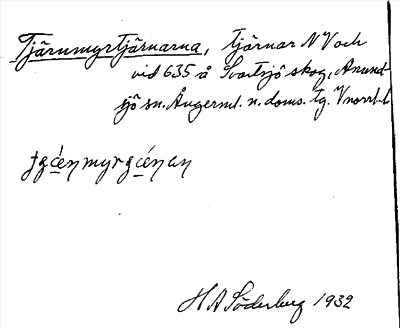 Tjärnmyrtjärnarna, tjärnar NV och
vid 635 å Svartsjö skog, Anund-
sjö sn. Ångerml. n. doms. tg. Vnorrl. l.
H A Söderberg 1932